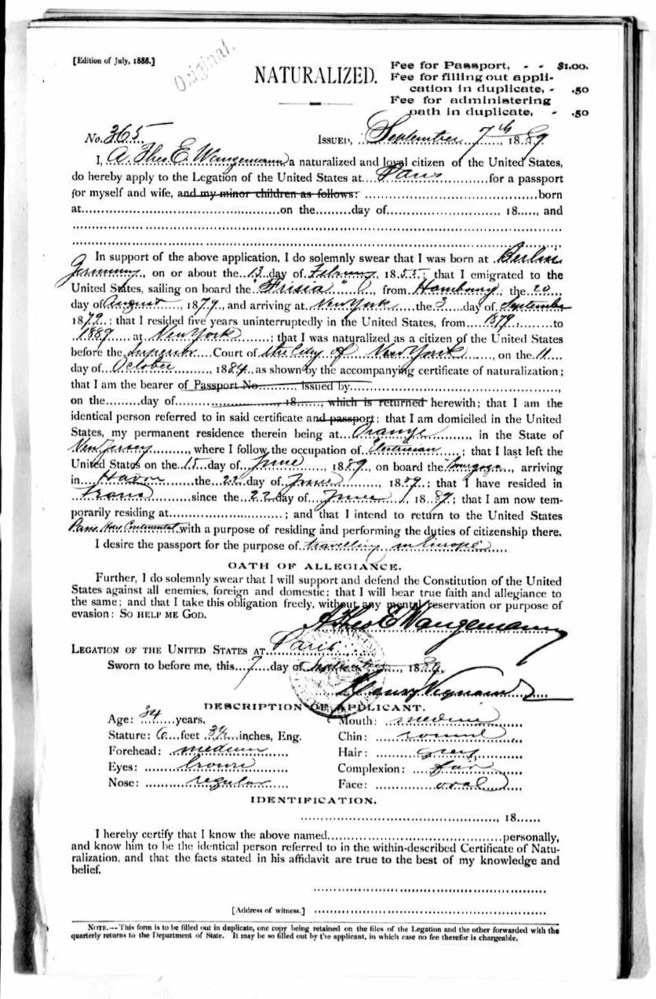 [Edition of July, 1888.]
Original.
NATURALIZED.
Fee for Passport, - - $1.00.
Fee for filling out appli-
cation in duplicate, - .50
Fee for administering
oath in duplicate, - .50
No. 365 ISSUED, September 7th 1889
I, A. Theo E. Wangemann, a naturalized and loyal citizen of the United States,
do hereby apply to the Legation of the United States at Paris for a passport
for myself and wife, and my minor children as follows: born
at on the day of 18 , and
In support of the above application, I do solemnly swear that I was born at Berlin
Germany, on or about the 13 day of February, 1855; that I emigrated to the
United States, sailing on board the "Frisia" from Hamburg, the 20
day of August, 1879, and arriving at New York the 3 day of September
1879; that I resided five years uninterruptedly in the United States, from 1879 to
1889 at New York; that I was naturalized as a citizen of the United States
before the Superior Court of the City of New York, on the 11
day of October, 1884, as shown by the accompanying certificate of naturalization;
that I am the bearer of Passport No. , issued by
on the day of 18 , which is returned herewith; that I am the
identical person referred to in said certificate and passport; that I am domiciled in the United
States, my permanent residence therein being at Orange, in the State of
New Jersey, where I follow the occupation of ; that I last left the
United States on the 15 day of June, 1889, on board the , arriving
in Havre the 22 day of June, 1889; that I have resided in
France since the 22 day of June, 1889; that I am now tem-
porarily residing at ; and that I intend to return to the United States
Paris Continental with a purpose of residing and performing the duties of citizenship there.
I desire the passport for the purpose of traveling in Europe
OATH OF ALLEGIANCE.
Further, I do solemnly swear that I will support and defend the Constitution of the United
States against all enemies, foreign and domestic; that I will bear true faith and allegiance to
the same; and that I take this obligation freely, without any mental reservation or purpose of
evasion: SO HELP ME GOD.
A Theo E Wangemann
LEGATION OF THE UNITED STATES AT Paris
Sworn to before me, this 7 day of September, 1889.
Henry Vignaud
DESCRIPTION OF APPLICANT.
Age: 34 years. Mouth: medium
Stature: 6 feet 3½ inches, Eng. Chin: round
Forehead: medium Hair: grey
Eyes: brown Complexion: fair
Nose: regular Face: oval
IDENTIFICATION.
, 18
I hereby certify that I know the above named personally,
and know him to be the identical person referred to in the within-described Certificate of Natu-
ralization, and that the facts stated in his affidavit are true to the best of my knowledge and
belief.
[Address of witness.]
NOTE.—This form is to be filled out in duplicate, one copy being retained on the files of the Legation and the other forwarded with the
quarterly returns to the Department of State. It may be so filled out by the applicant, in which case no fee therefor is chargeable.